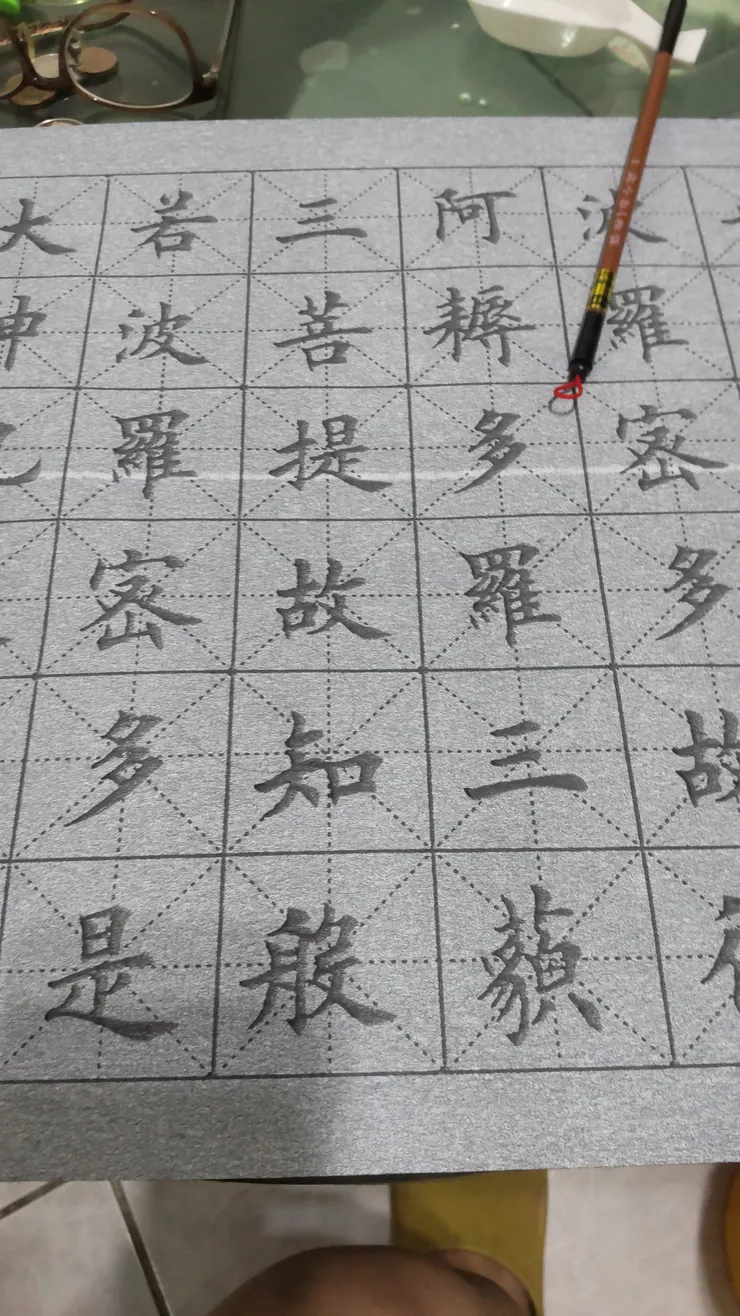 波羅密多故
阿耨多羅三藐
三菩提故知般
若波羅密多是
大神